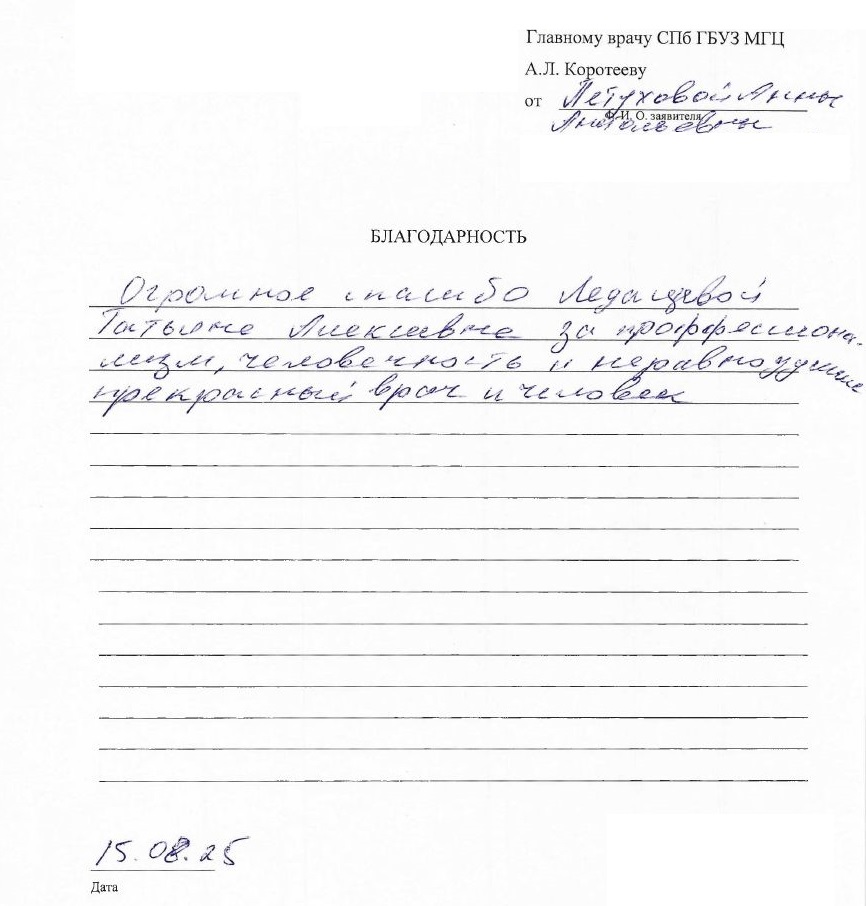 Главному врачу СПб ГБУЗ МГЦ
А.Л. Коротееву
от Петуховой Анны
Ф. И. О. заявителя
Анатольевны
БЛАГОДАРНОСТЬ
Огромное спасибо Ледащевой
Татьяне Алексеевне за профессиона-
лизм, человечность и неравнодушие
прекрасный врач и человек
15.08.25
Дата